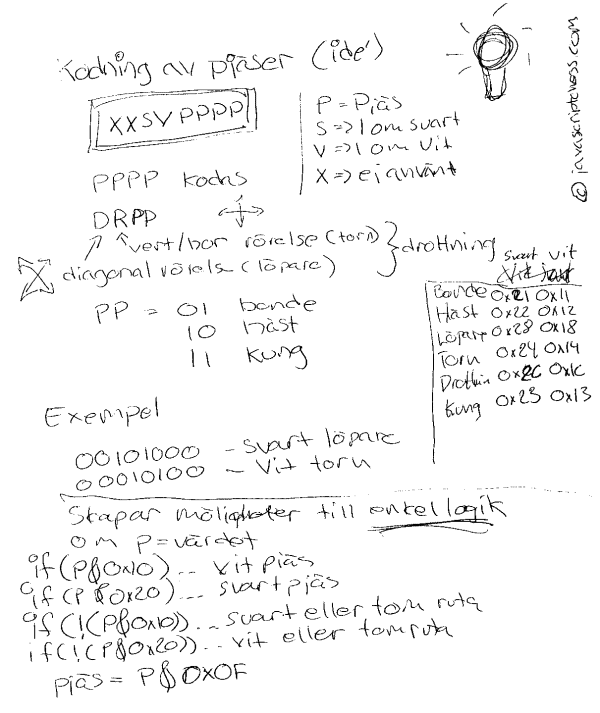 Kodning av pjäser (idé)
© javascriptchess.com
XXSVPPPP
P = Pjäs
S => 1 om svart
V => 1 om vit
X => ej använt
PPPP kodas
DRPP
vert/hor rörelse (torn)
diagonal rörels (löpare)
drottning
PP = 01 bonde
10 häst
11 kung
svart vit
Bonde 0x21 0x11
Häst 0x22 0x12
Löpare 0x28 0x18
Torn 0x24 0x14
Drottnin 0x2C 0x1C
Kung 0x23 0x13
Exempel
00101000 - svart löpare
00010100 - vit torn
Skapar möligheter till enkel logik
om P=värdet
if(P&0x10)... vit pjäs
if(P&0x20)... svart pjäs
if(!(P&0x10))... svart eller tom ruta
if(!(P&0x20))... vit eller tom ruta
pjäs = P&0x0F